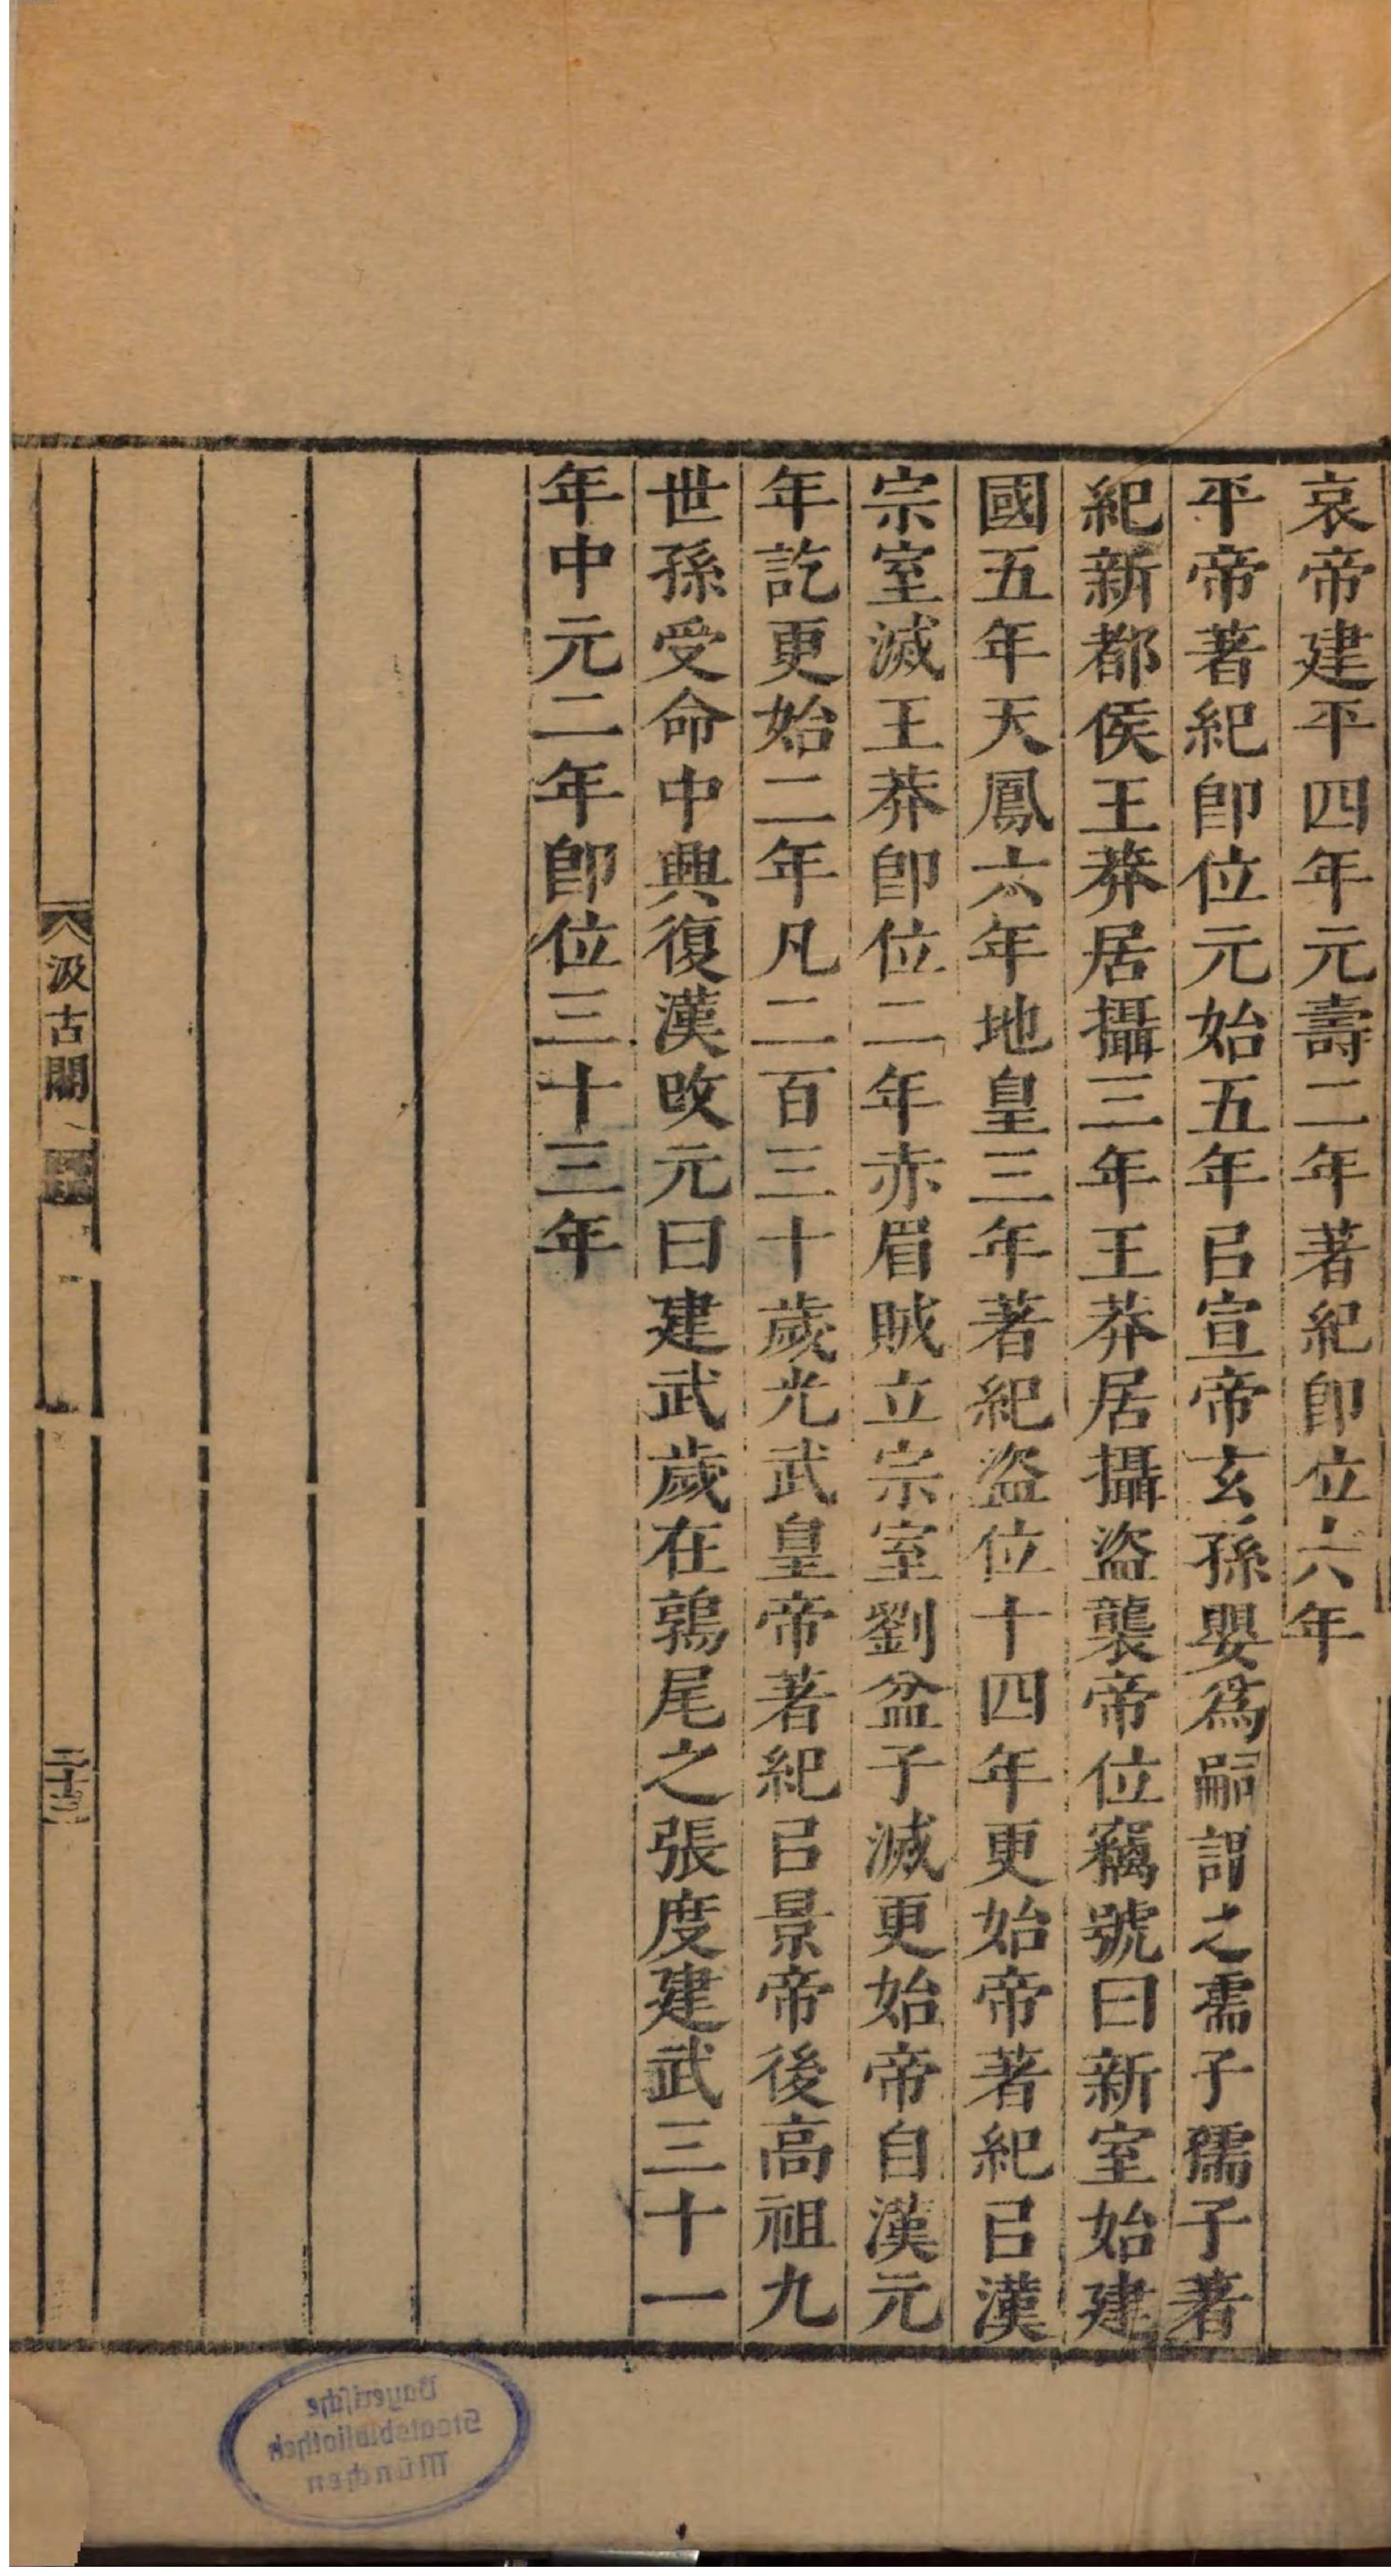 哀帝建平四年元壽二年著紀卽位六年
平帝著紀卽位元始五年㠯宣帝玄孫嬰爲嗣謂之孺子孺子著
紀新都侯王莽居攝三年王莽居攝盜襲帝位竊號曰新室始建
國五年天鳳六年地皇三年著紀盜位十四年更始帝著紀㠯漢
宗室滅王莽卽位二年赤眉賊立宗室劉盆子滅更始帝自漢元
年訖更始二年凡二百三十歲光武皇帝著紀㠯景帝後高祖九
世孫受命中興復漢改元曰建武歲在鶉尾之張度建武三十一
年中元二年卽位三十三年
汲古閣
Bayerische
Staatsbibliothek
München